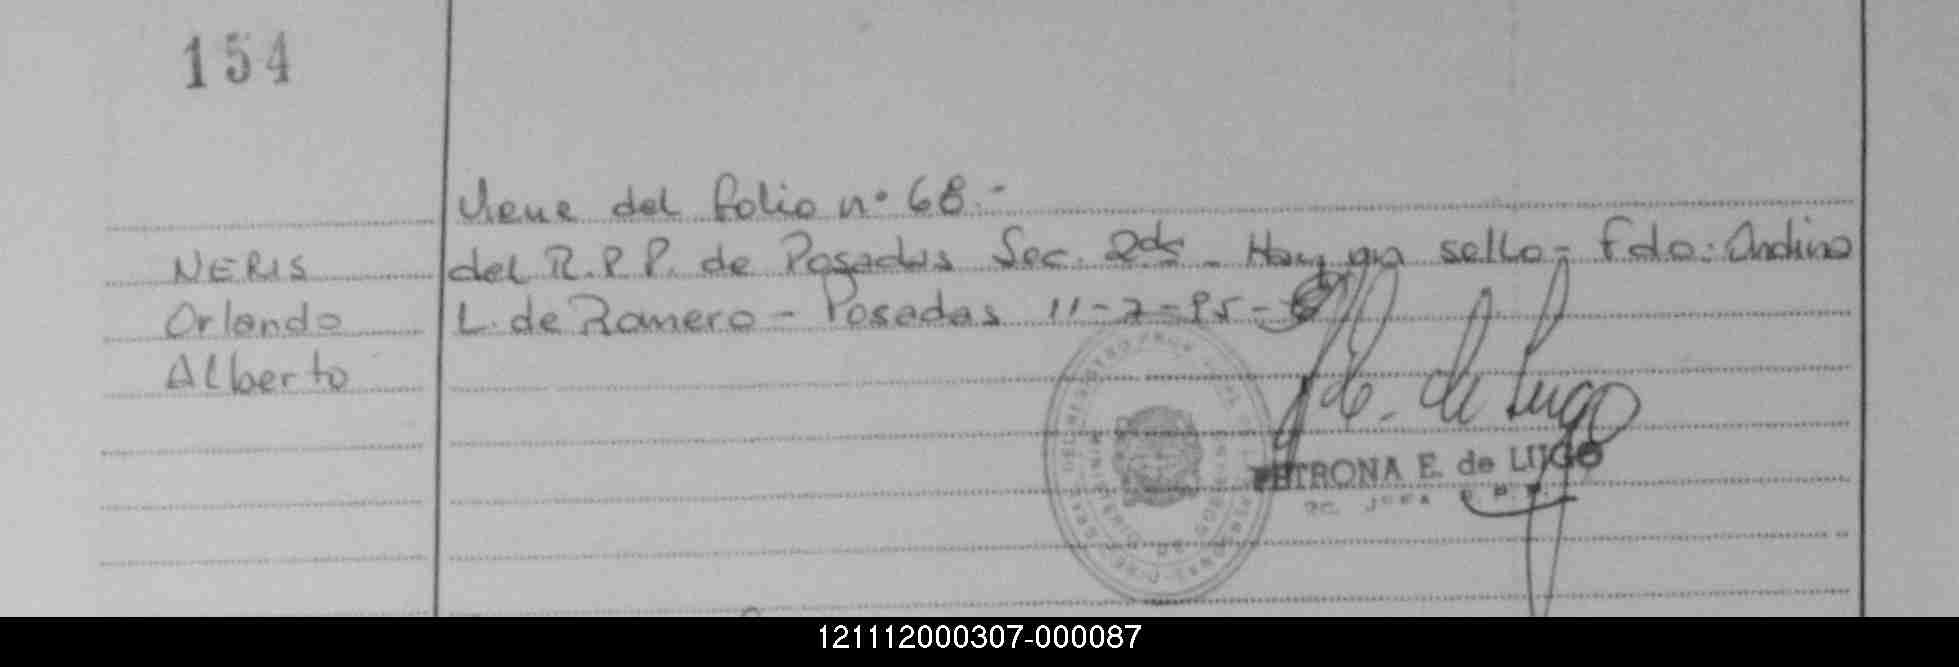 154
Viene del folio nº 68.-
NERIS
Orlando
Alberto
del R.P.P. de Posadas Sec. 2da - Hay un sello - Fdo: Andino
L. de Romero - Posadas 11-7-95-
PETRONA E. de LUGO
JEFA R. P. P.
121112000307-000087